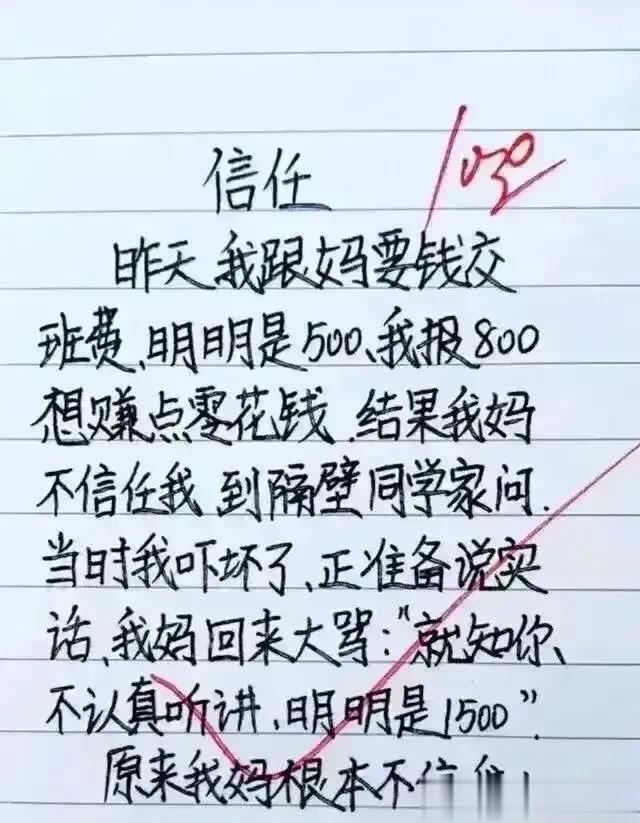 信任
100
昨天我跟妈要钱交
班费、明明是500、我报800
想赚点零花钱.结果我妈
不信任我 到隔壁同学家问.
当时我吓坏了、正准备说实
话、我妈回来大骂:“就知你、
不认真听讲、明明是1500”.
原来我妈根本不信